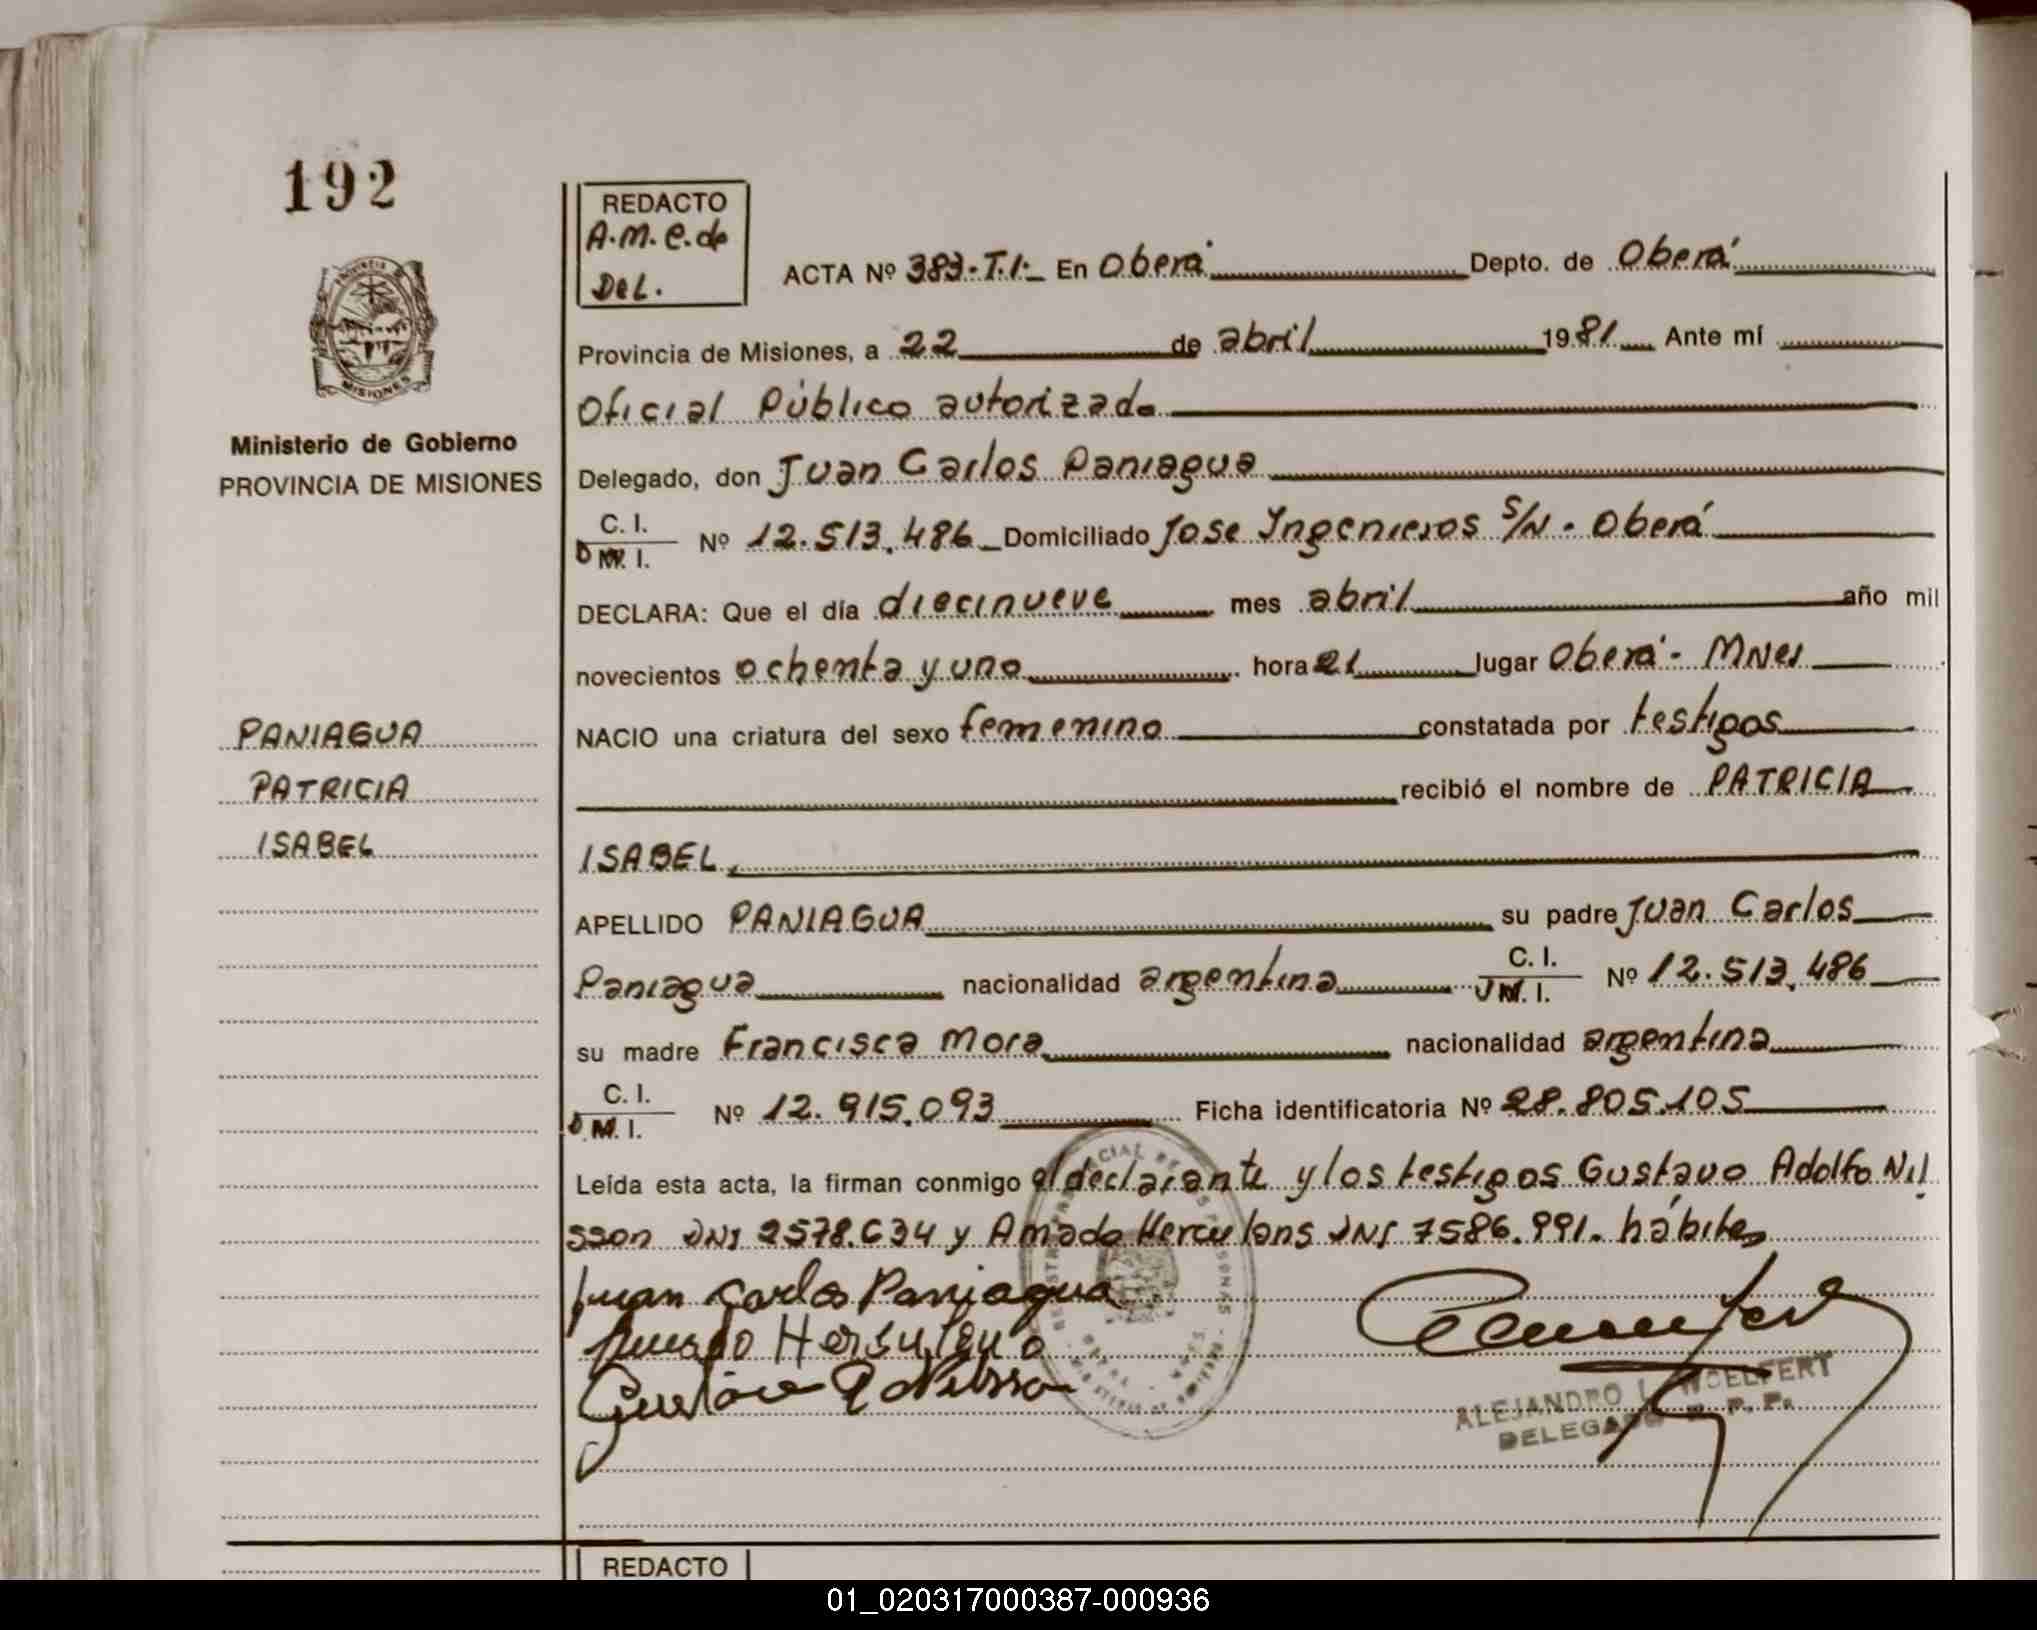 192
REDACTO
A.M.C.de
DEL.
ACTA Nº 383-T.I.- En Oberá Depto. de Oberá
Provincia de Misiones, a 22 de abril 1981 Ante mí
Oficial Público autorizado
Ministerio de Gobierno
PROVINCIA DE MISIONES
Delegado, don Juan Carlos Paniagua
C. I.
D M. I. Nº 12.513.486 Domiciliado Jose Ingenieros S/N. Oberá
DECLARA: Que el día diecinueve mes abril año mil
novecientos ochenta y uno hora 21 lugar Oberá - Mnes
PANIAGUA
PATRICIA
ISABEL
NACIO una criatura del sexo femenino constatada por testigos
recibió el nombre de PATRICIA
ISABEL
APELLIDO PANIAGUA su padre Juan Carlos
Paniagua nacionalidad argentina C. I. M. I. Nº 12.513.486
su madre Francisca Mora nacionalidad argentina
C. I.
M. I. Nº 12.915.093 Ficha identificatoria Nº 28.805.105
Leída esta acta, la firman conmigo el declarante y los testigos Gustavo Adolfo Nil
sson DNI 2578.634 y Amado Herculans DNI 7586.991. hábiles
Juan Carlos Paniagua
ALEJANDRO L. WOELFERT
DELEGADO R. P. P.
REDACTO
01_020317000387-000936